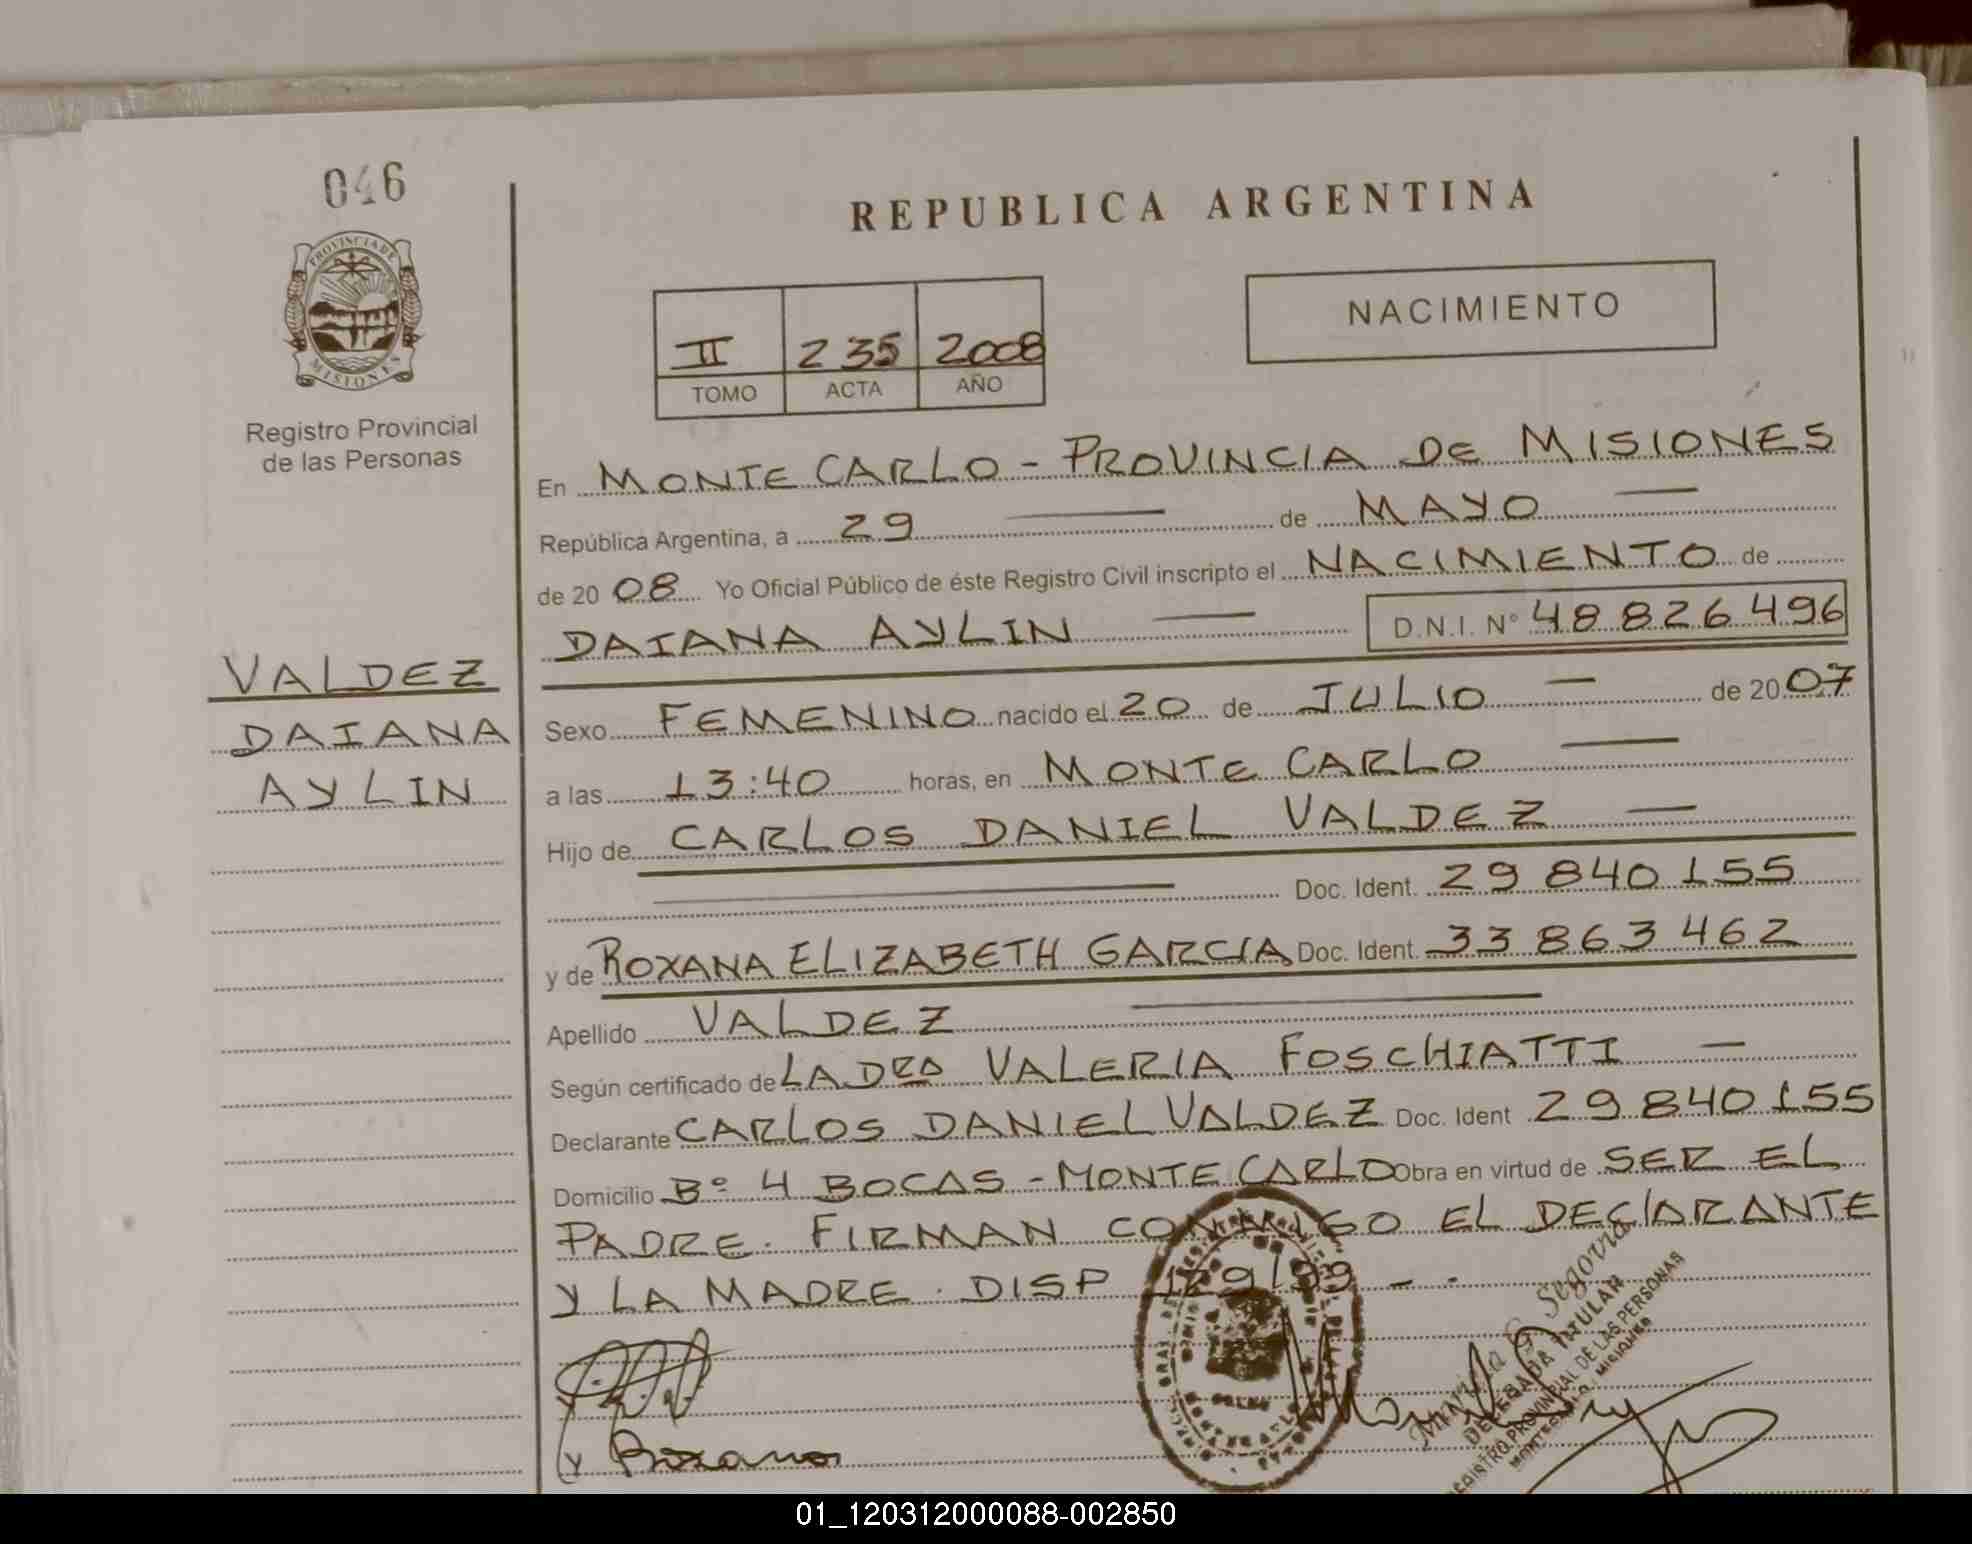 046
REPUBLICA ARGENTINA
PROVINCIA DE
MISIONES
Registro Provincial
de las Personas
II 235 2008
TOMO ACTA AÑO
NACIMIENTO
En MONTE CARLO - PROVINCIA DE MISIONES
República Argentina, a 29 de MAYO
de 2008 Yo Oficial Público de éste Registro Civil inscripto el NACIMIENTO de
DAIANA AYLIN D.N.I. N° 48 826 496
VALDEZ
DAIANA
AYLIN
Sexo FEMENINO nacido el 20 de JULIO de 2007
a las 13:40 horas, en MONTE CARLO
Hijo de CARLOS DANIEL VALDEZ
Doc. Ident. 29 840 155
y de ROXANA ELIZABETH GARCIA Doc. Ident. 33 863 462
Apellido VALDEZ
Según certificado de LA DRA VALERIA FOSCHIATTI
Declarante CARLOS DANIEL VALDEZ Doc. Ident 29 840 155
Domicilio B° 4 BOCAS - MONTE CARLO Obra en virtud de SER EL
PADRE. FIRMAN CONMIGO EL DECLARANTE
Y LA MADRE. DISP 129/99 - -
Segovia
DELEGADA TITULAR
REGISTRO PROVINCIAL DE LAS PERSONAS
MONTECARLO MISIONES
y Roxana
01_120312000088-002850